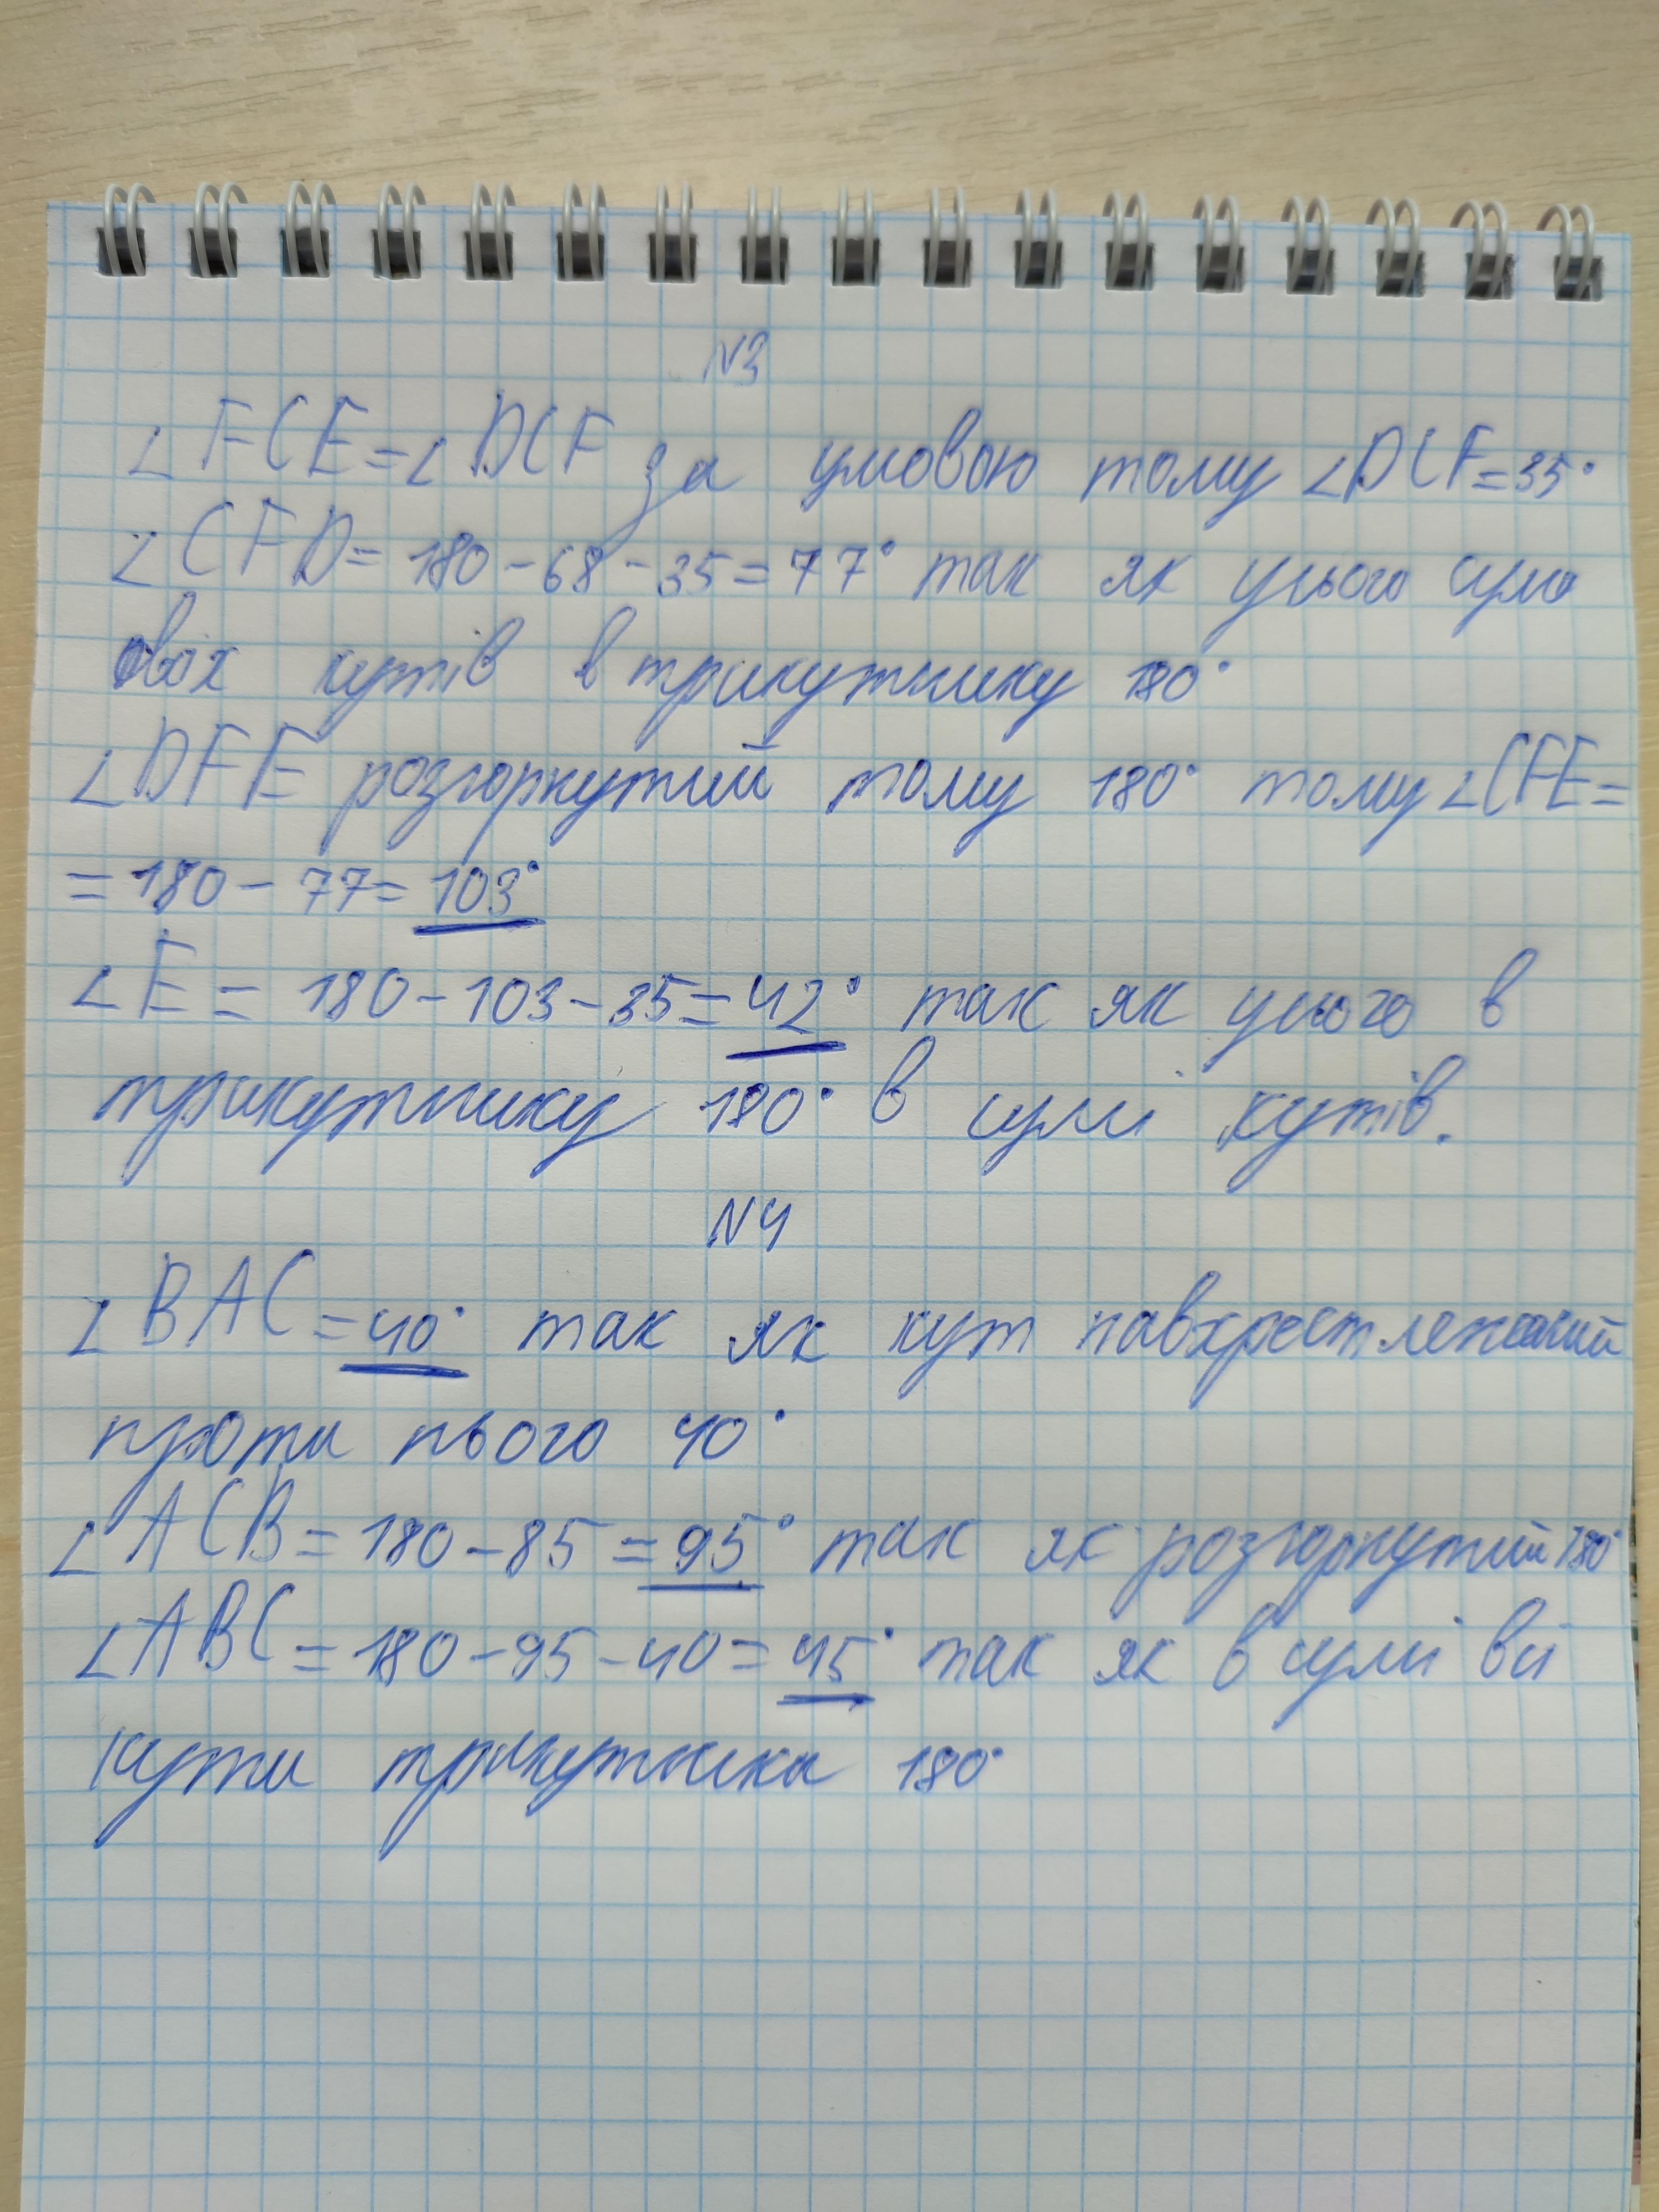 N3
∠FCE=∠DCF за умовою тому ∠DCF=35°
∠CFD=180-68-35=77° так як усього сума
двох кутів в трикутнику 180°
∠DFE розгорнутий тому 180° тому ∠CFE=
=180-77=103°
∠E=180-103-35=42° так як усього в
трикутнику 180° в сумі кутів.
N4
∠BAC=40° так як кут навхрест лежачий
проти нього 40°
∠ACB=180-85=95° так як розгорнутий 180°
∠ABC=180-95-40=45° так як в сумі всі
кути трикутника 180°